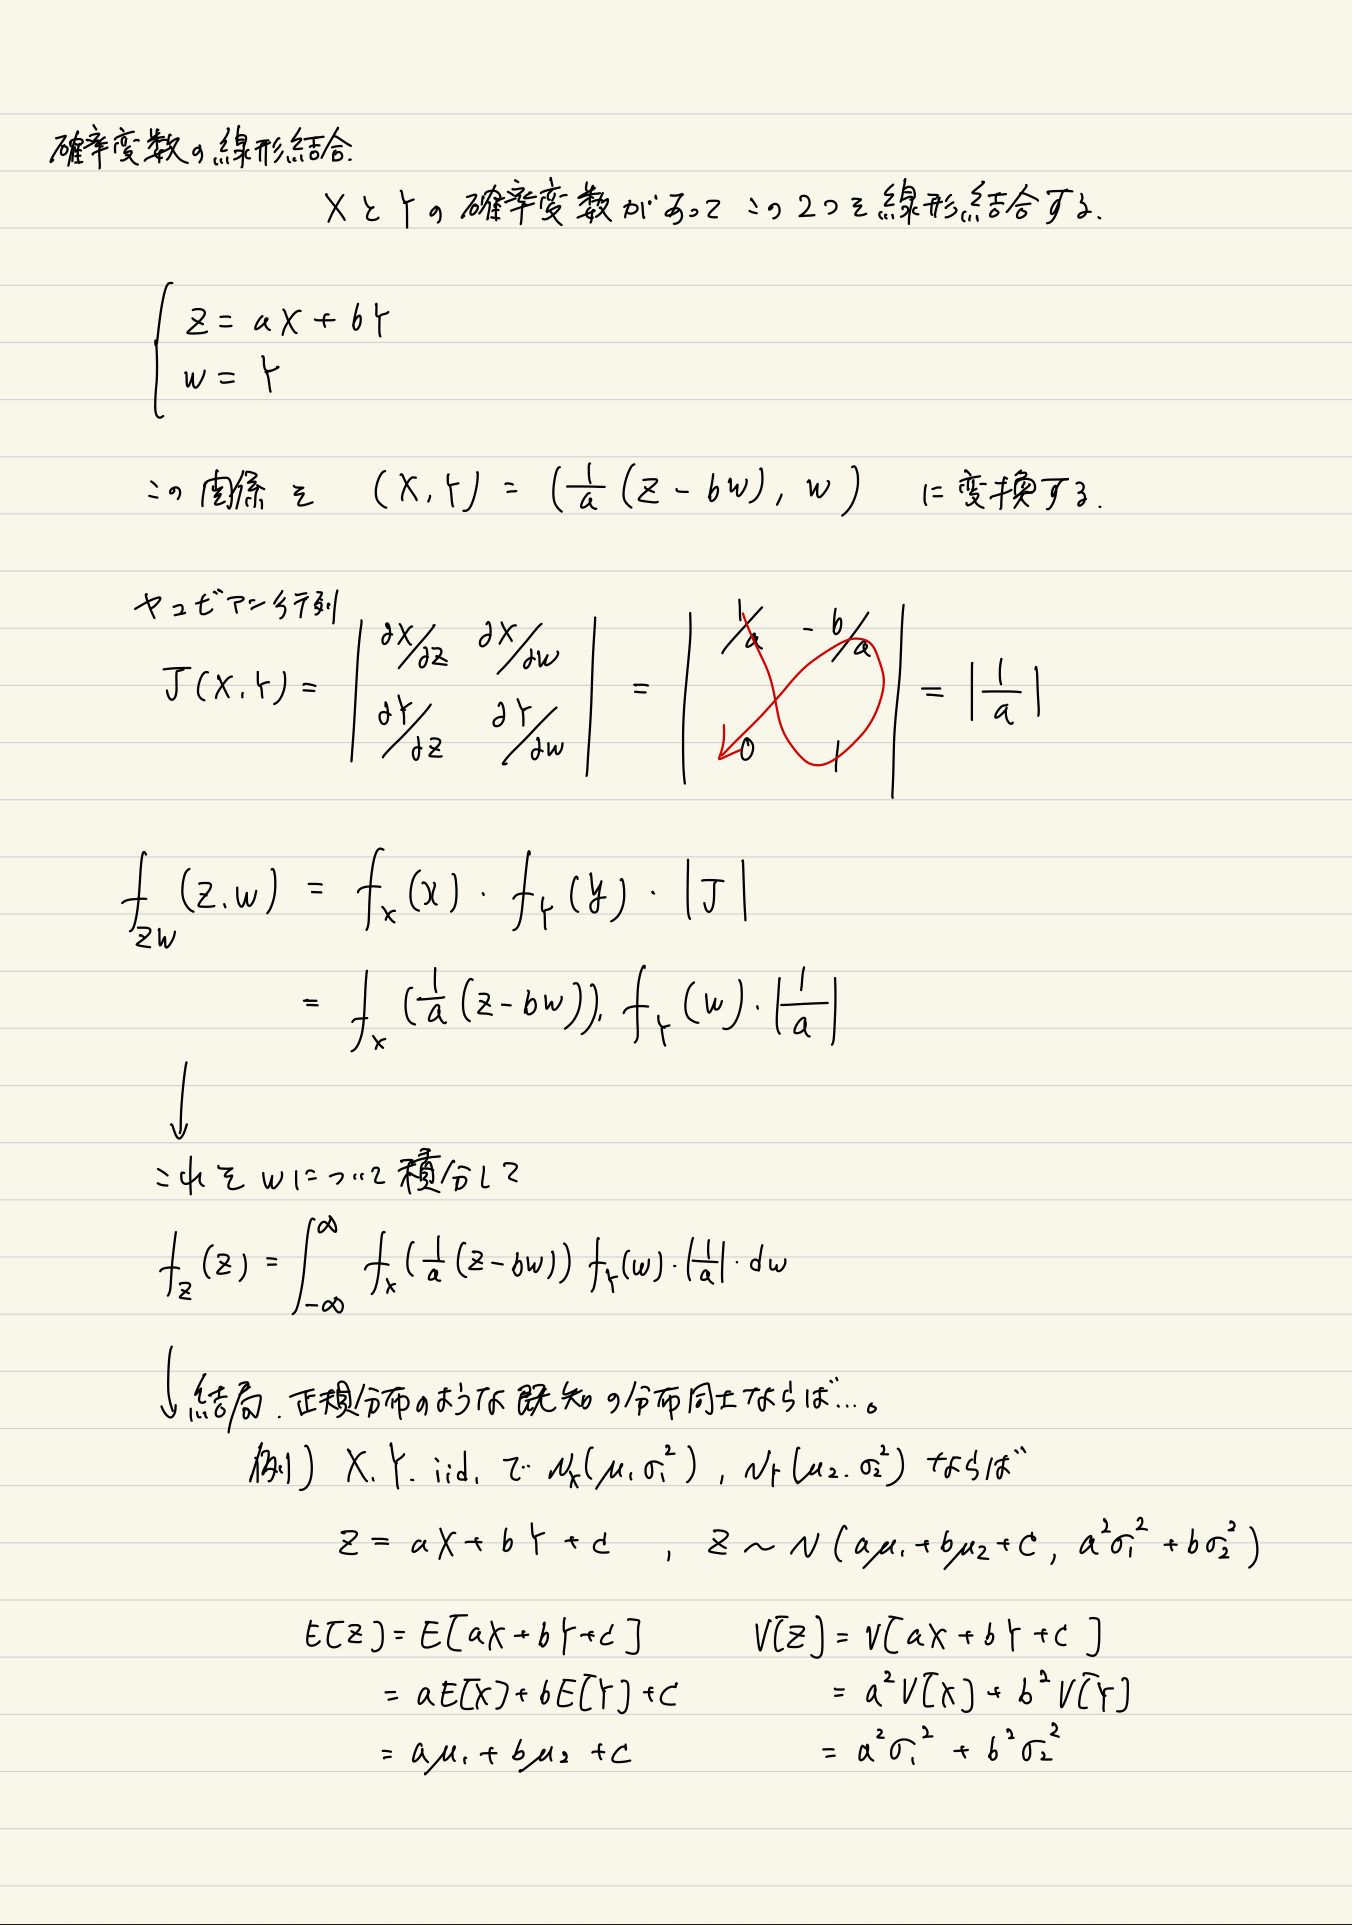 確率変数の線形結合.
XとYの確率変数があってこの2つを線形結合する.
Z = aX + bY
W = Y
この関係を (X, Y) = (1/a (Z - bW), W) に変換する.
ヤコビアン行列
J(X, Y) = | ∂X/∂Z ∂X/∂W ; ∂Y/∂Z ∂Y/∂W | = | 1/a -b/a ; 0 1 | = |1/a|
f_ZW (Z, W) = f_X (x) · f_Y (y) · |J|
= f_X (1/a (Z - bW)) · f_Y (W) · |1/a|
↓
これをWについて積分して
f_Z (Z) = ∫_{-∞}^{∞} f_X (1/a (Z - bW)) f_Y (W) · |1/a| · dW
↓ 結局. 正積分布のような既知の分布同士ならば…。
例) X, Y. iid. で N_X(μ₁, σ₁²) , N_Y(μ₂, σ₂²) ならば
Z = aX + bY + c , Z ~ N (aμ₁ + bμ₂ + c, a²σ₁² + bσ₂²)
E[Z] = E[aX + bY + c] V[Z] = V[aX + bY + c]
= aE[X] + bE[Y] + c = a²V[X] + b²V[Y]
= aμ₁ + bμ₂ + c = a²σ₁² + b²σ₂²